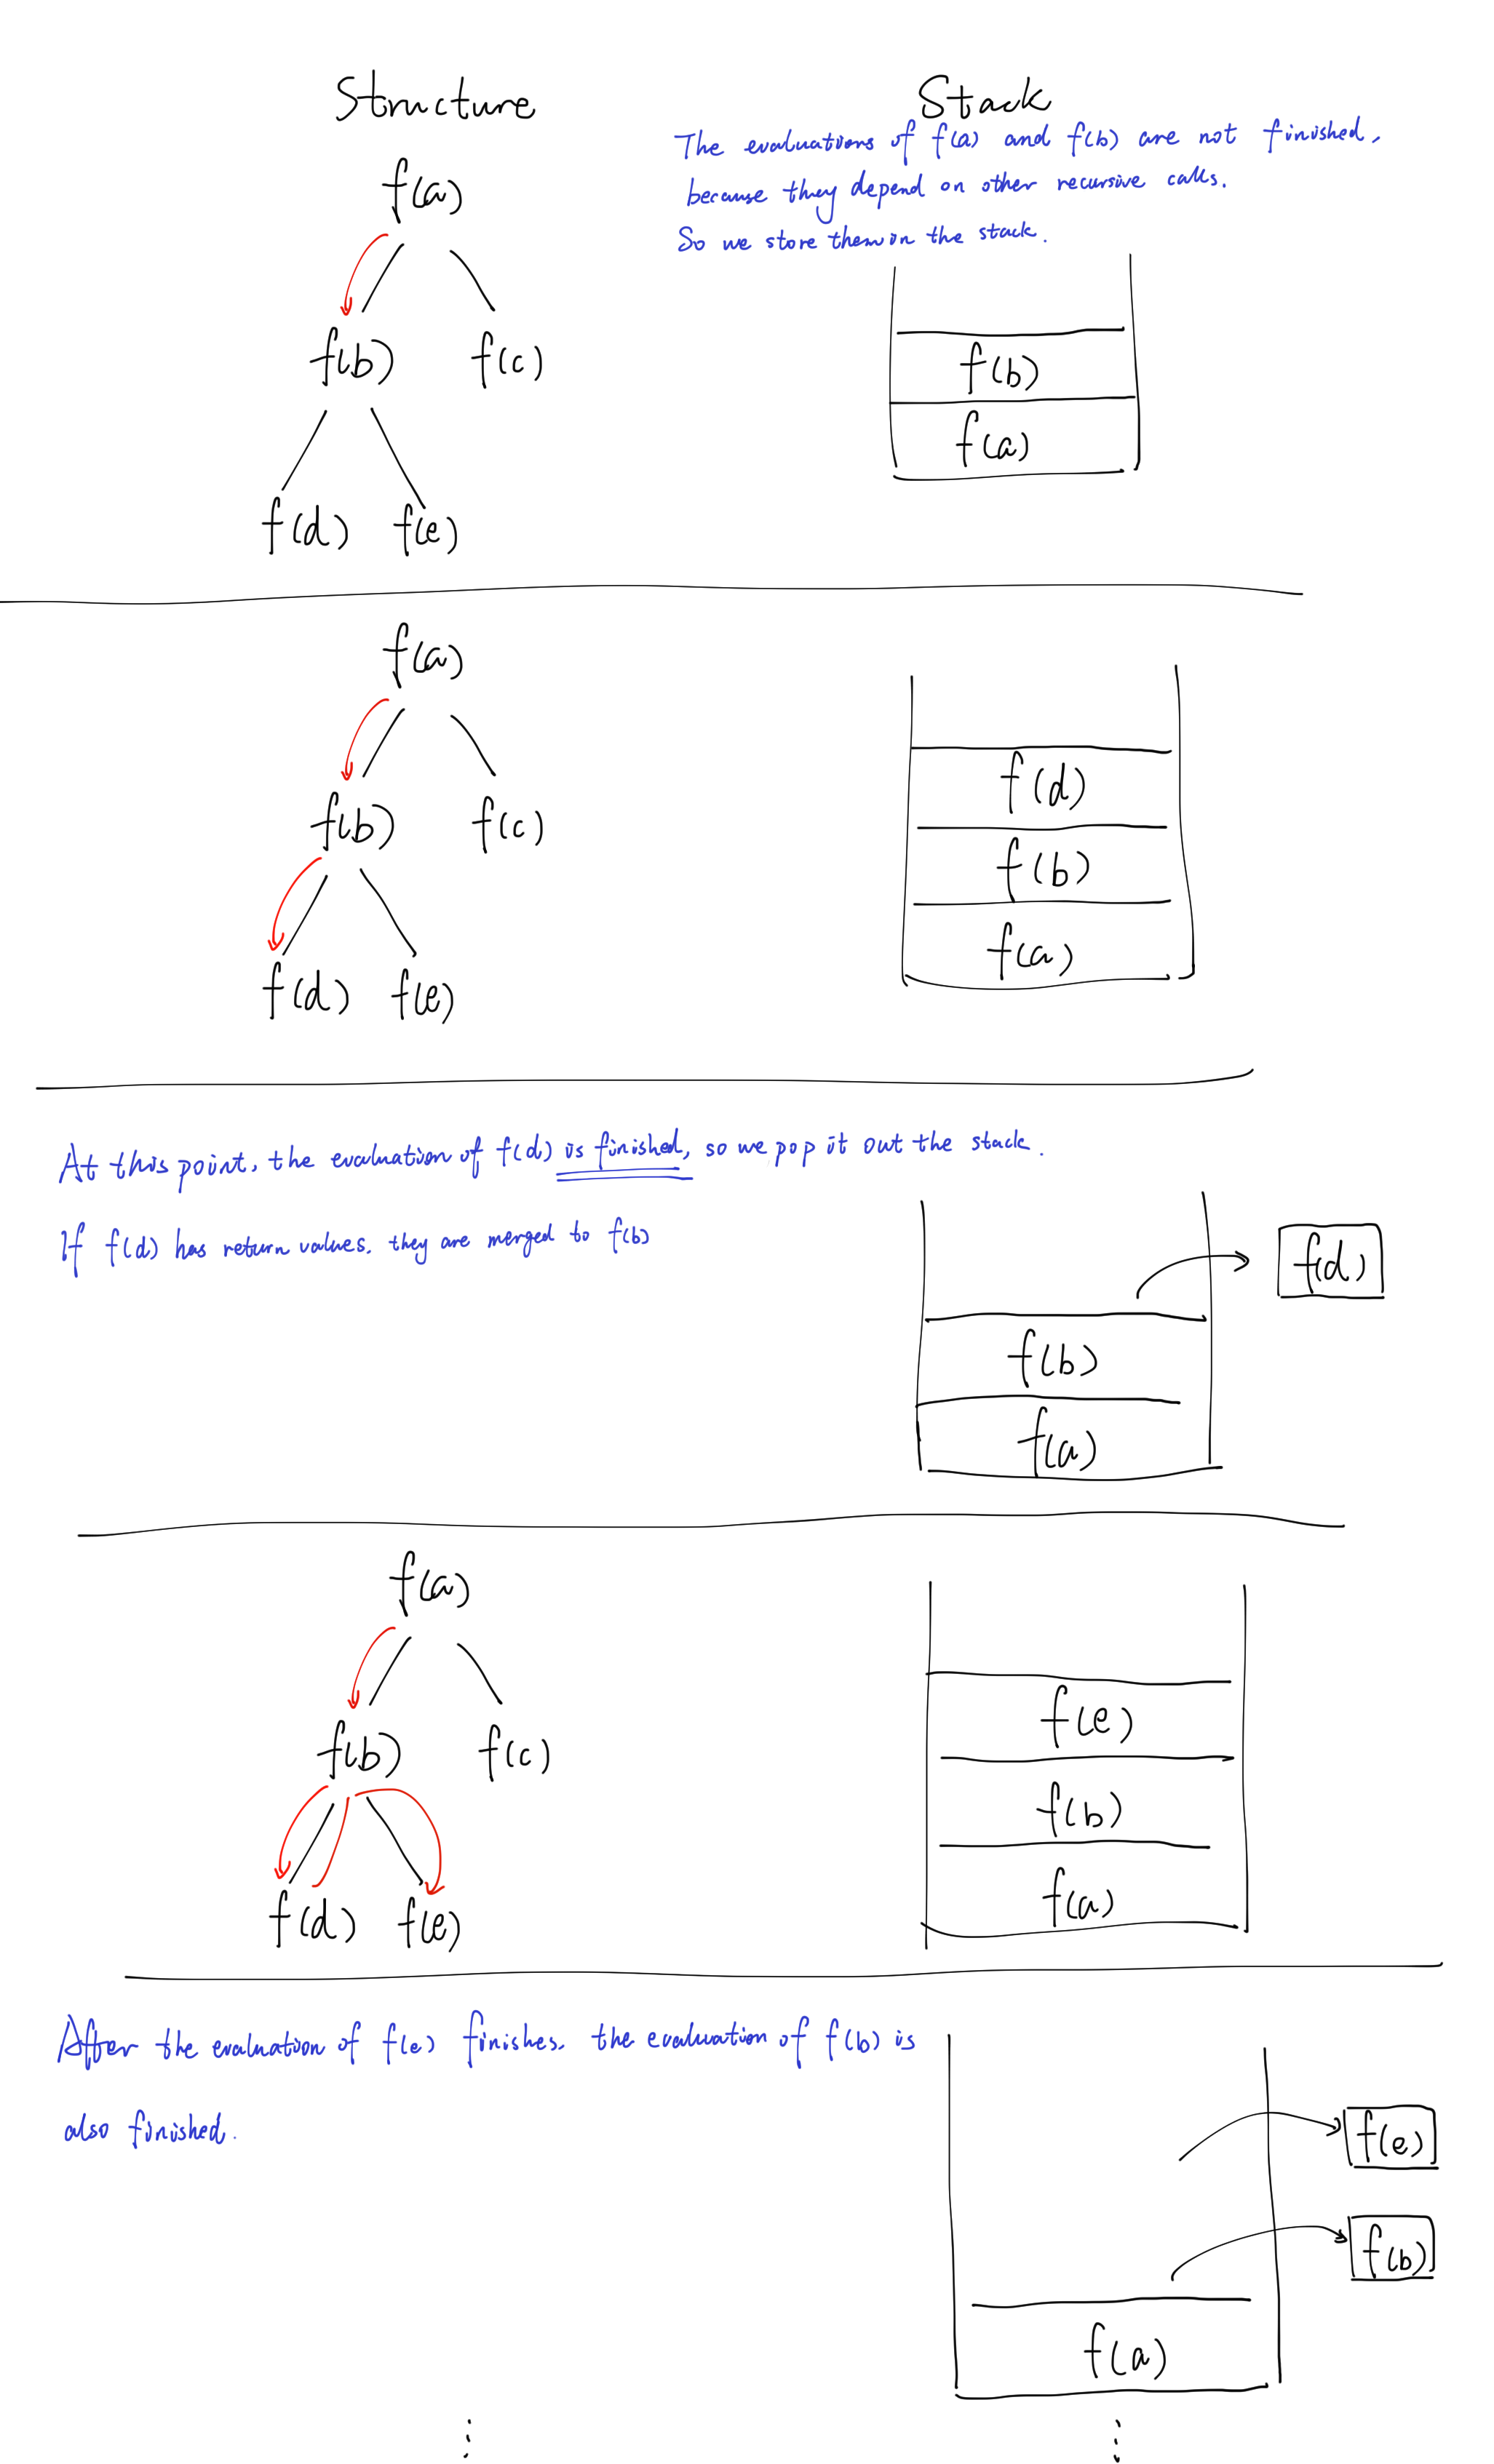 Structure
Stack
The evaluations of f(a) and f(b) are not finished,
because they depend on other recursive calls.
So we store them in the stack.
f(a)
f(b) f(c)
f(d) f(e)
f(b)
f(a)
f(a)
f(b) f(c)
f(d) f(e)
f(d)
f(b)
f(a)
At this point, the evaluation of f(d) is finished, so we pop it out the stack.
If f(d) has return values. they are merged to f(b)
f(d)
f(b)
f(a)
f(a)
f(b) f(c)
f(d) f(e)
f(e)
f(b)
f(a)
After the evaluation of f(e) finishes. the evaluation of f(b) is
also finished.
f(e)
f(b)
f(a)